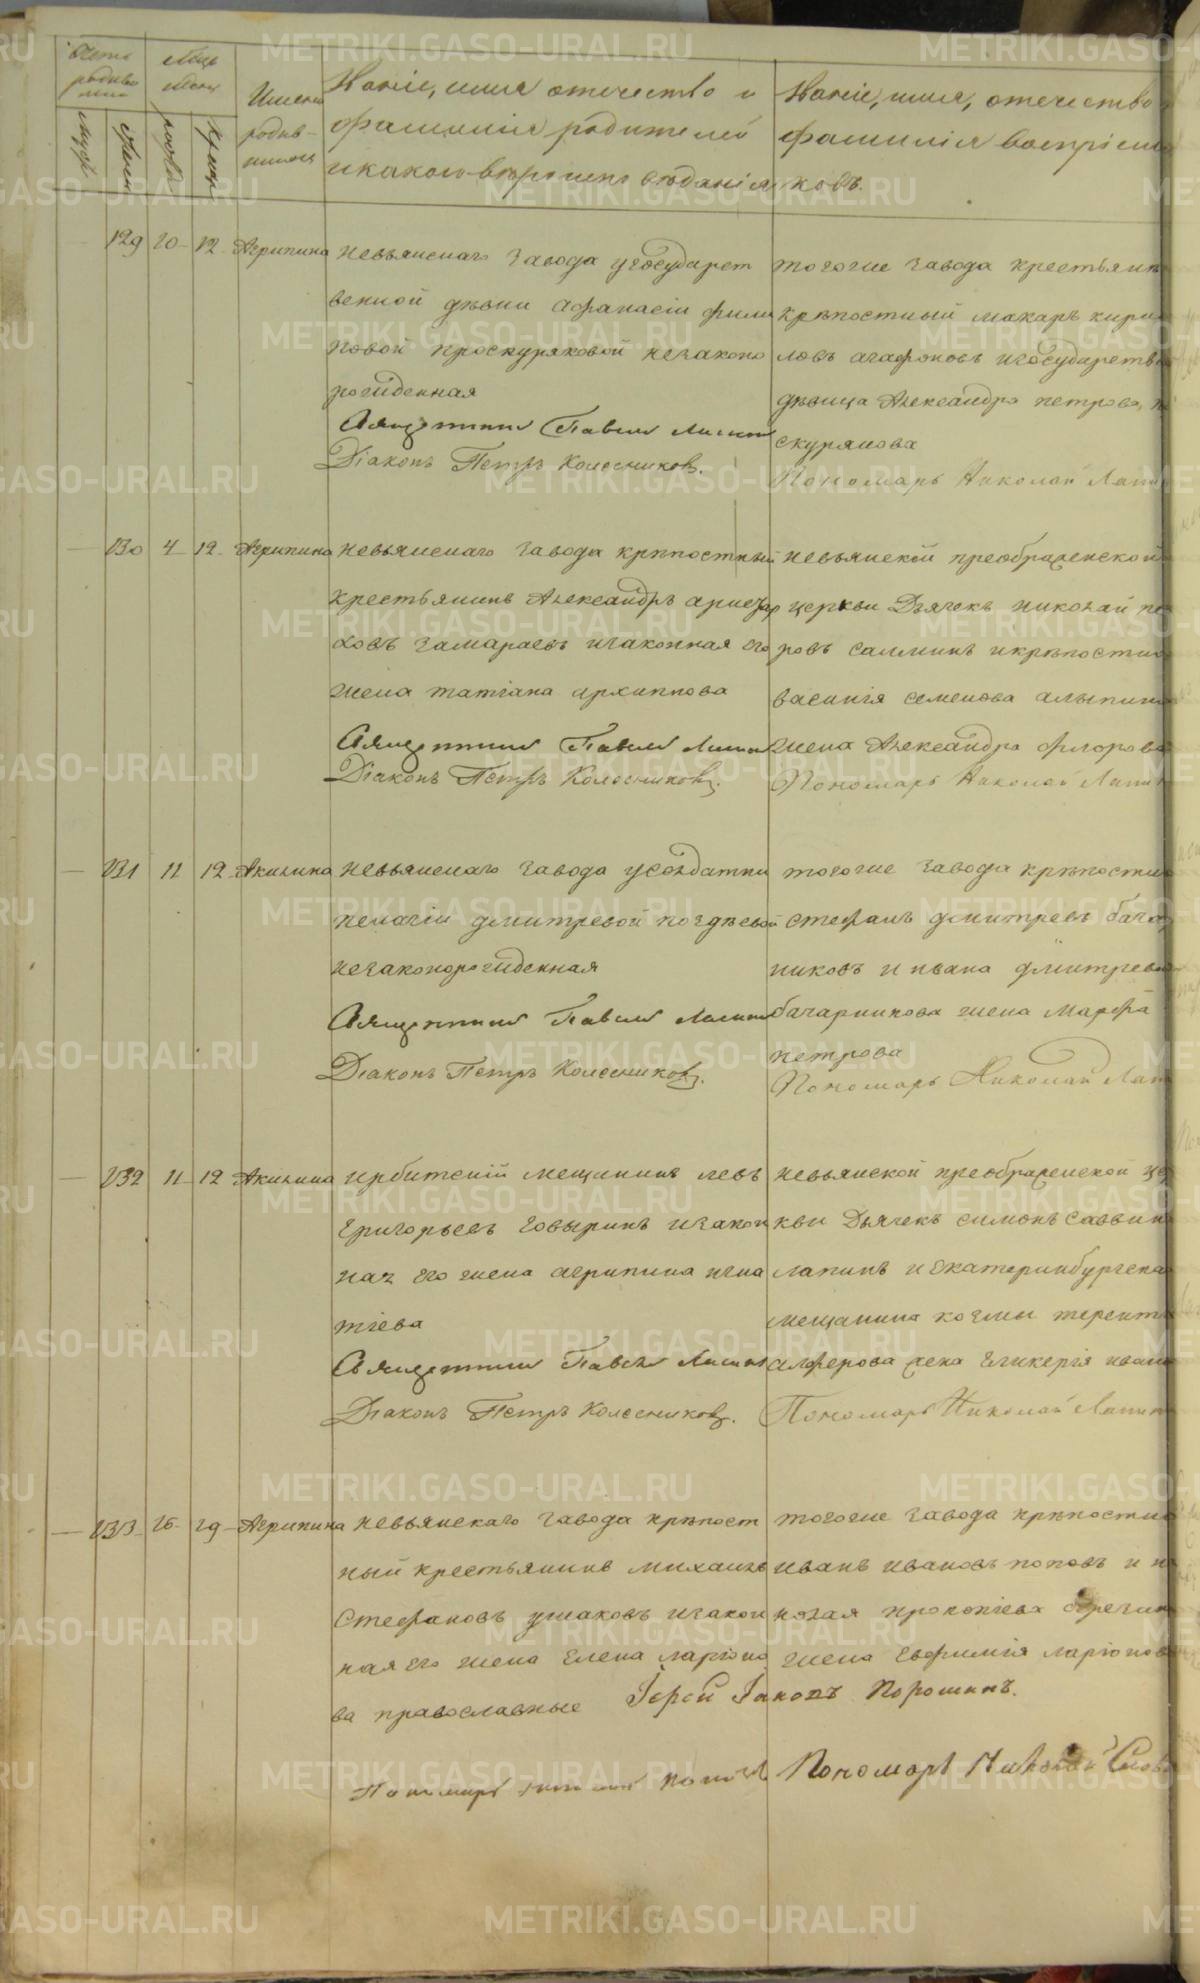 Счетъ родившихся
Мѣсяц
Имена родив-шихся
Званіе, имя отечество и фамилія родителей и какого вѣроисповѣданія
Званіе, имя, отечество фамилія воспріем ковъ.
129 20 12 Агрипина
невьянскаго завода у государст
венной дѣвки Афанасіи фили
повой проскуряковой незаконо
рожденная
Священникъ Павелъ
Діаконъ Петръ Колесниковъ.
того же завода крестьянин
крѣпостный макаръ кири
ловъ агафоновъ и государств
дѣвица Александра петрова
скурякова
Пономарь Николай Лапин
130 4 12 Агрипина
невьянскаго завода крѣпостный
крестьянинъ Александръ
ховъ замараевъ и законная его
жена татіана архиппова
Священникъ Павелъ
Діаконъ Петръ Колесниковъ.
невьянской преображенской
церкви Дьячекъ николай
ровъ и крѣпостн
василія семенова
жена Александра флорова
Пономарь Николай Лапин
131 11 12 Акилина
невьянскаго завода у солдатки
пелагіи дмитревой поздѣевой
незаконорожденная
Священникъ Павелъ
Діаконъ Петръ Колесниковъ.
того же завода крѣпостны
стефанъ дмитревъ бачар
никовъ и ивана дмитрева
бачарникова жена Марфа
петрова
Пономарь Николай Лап
132 11 12 Акилина
ирбитскій мещанинъ левъ
григорьевъ говыринъ и закон
ная его жена агрипина игна
тіева
Священникъ Павелъ
Діаконъ Петръ Колесниковъ.
невьянской преображенской це
кви Дьячекъ симонъ саввин
лапинъ и екатеринбургска
мещанина козмы терентье
алферова жена гликерія иван
Пономарь Николай Лапин
133 26 29 Агрипина
невьянскаго завода крѣпост
ный крестьянинъ михаилъ
Стефановъ ушаковъ и закон
ная его жена Елена ларіоно
ва православные Іерей Іаковъ Порошинъ.
того же завода крѣпостны
иванъ ивановъ поповъ и н
колая прокопіева
жена Евфимія ларіонов
Пономарь Попов
Пономарь Николай
METRIKI.GASO-URAL.RU